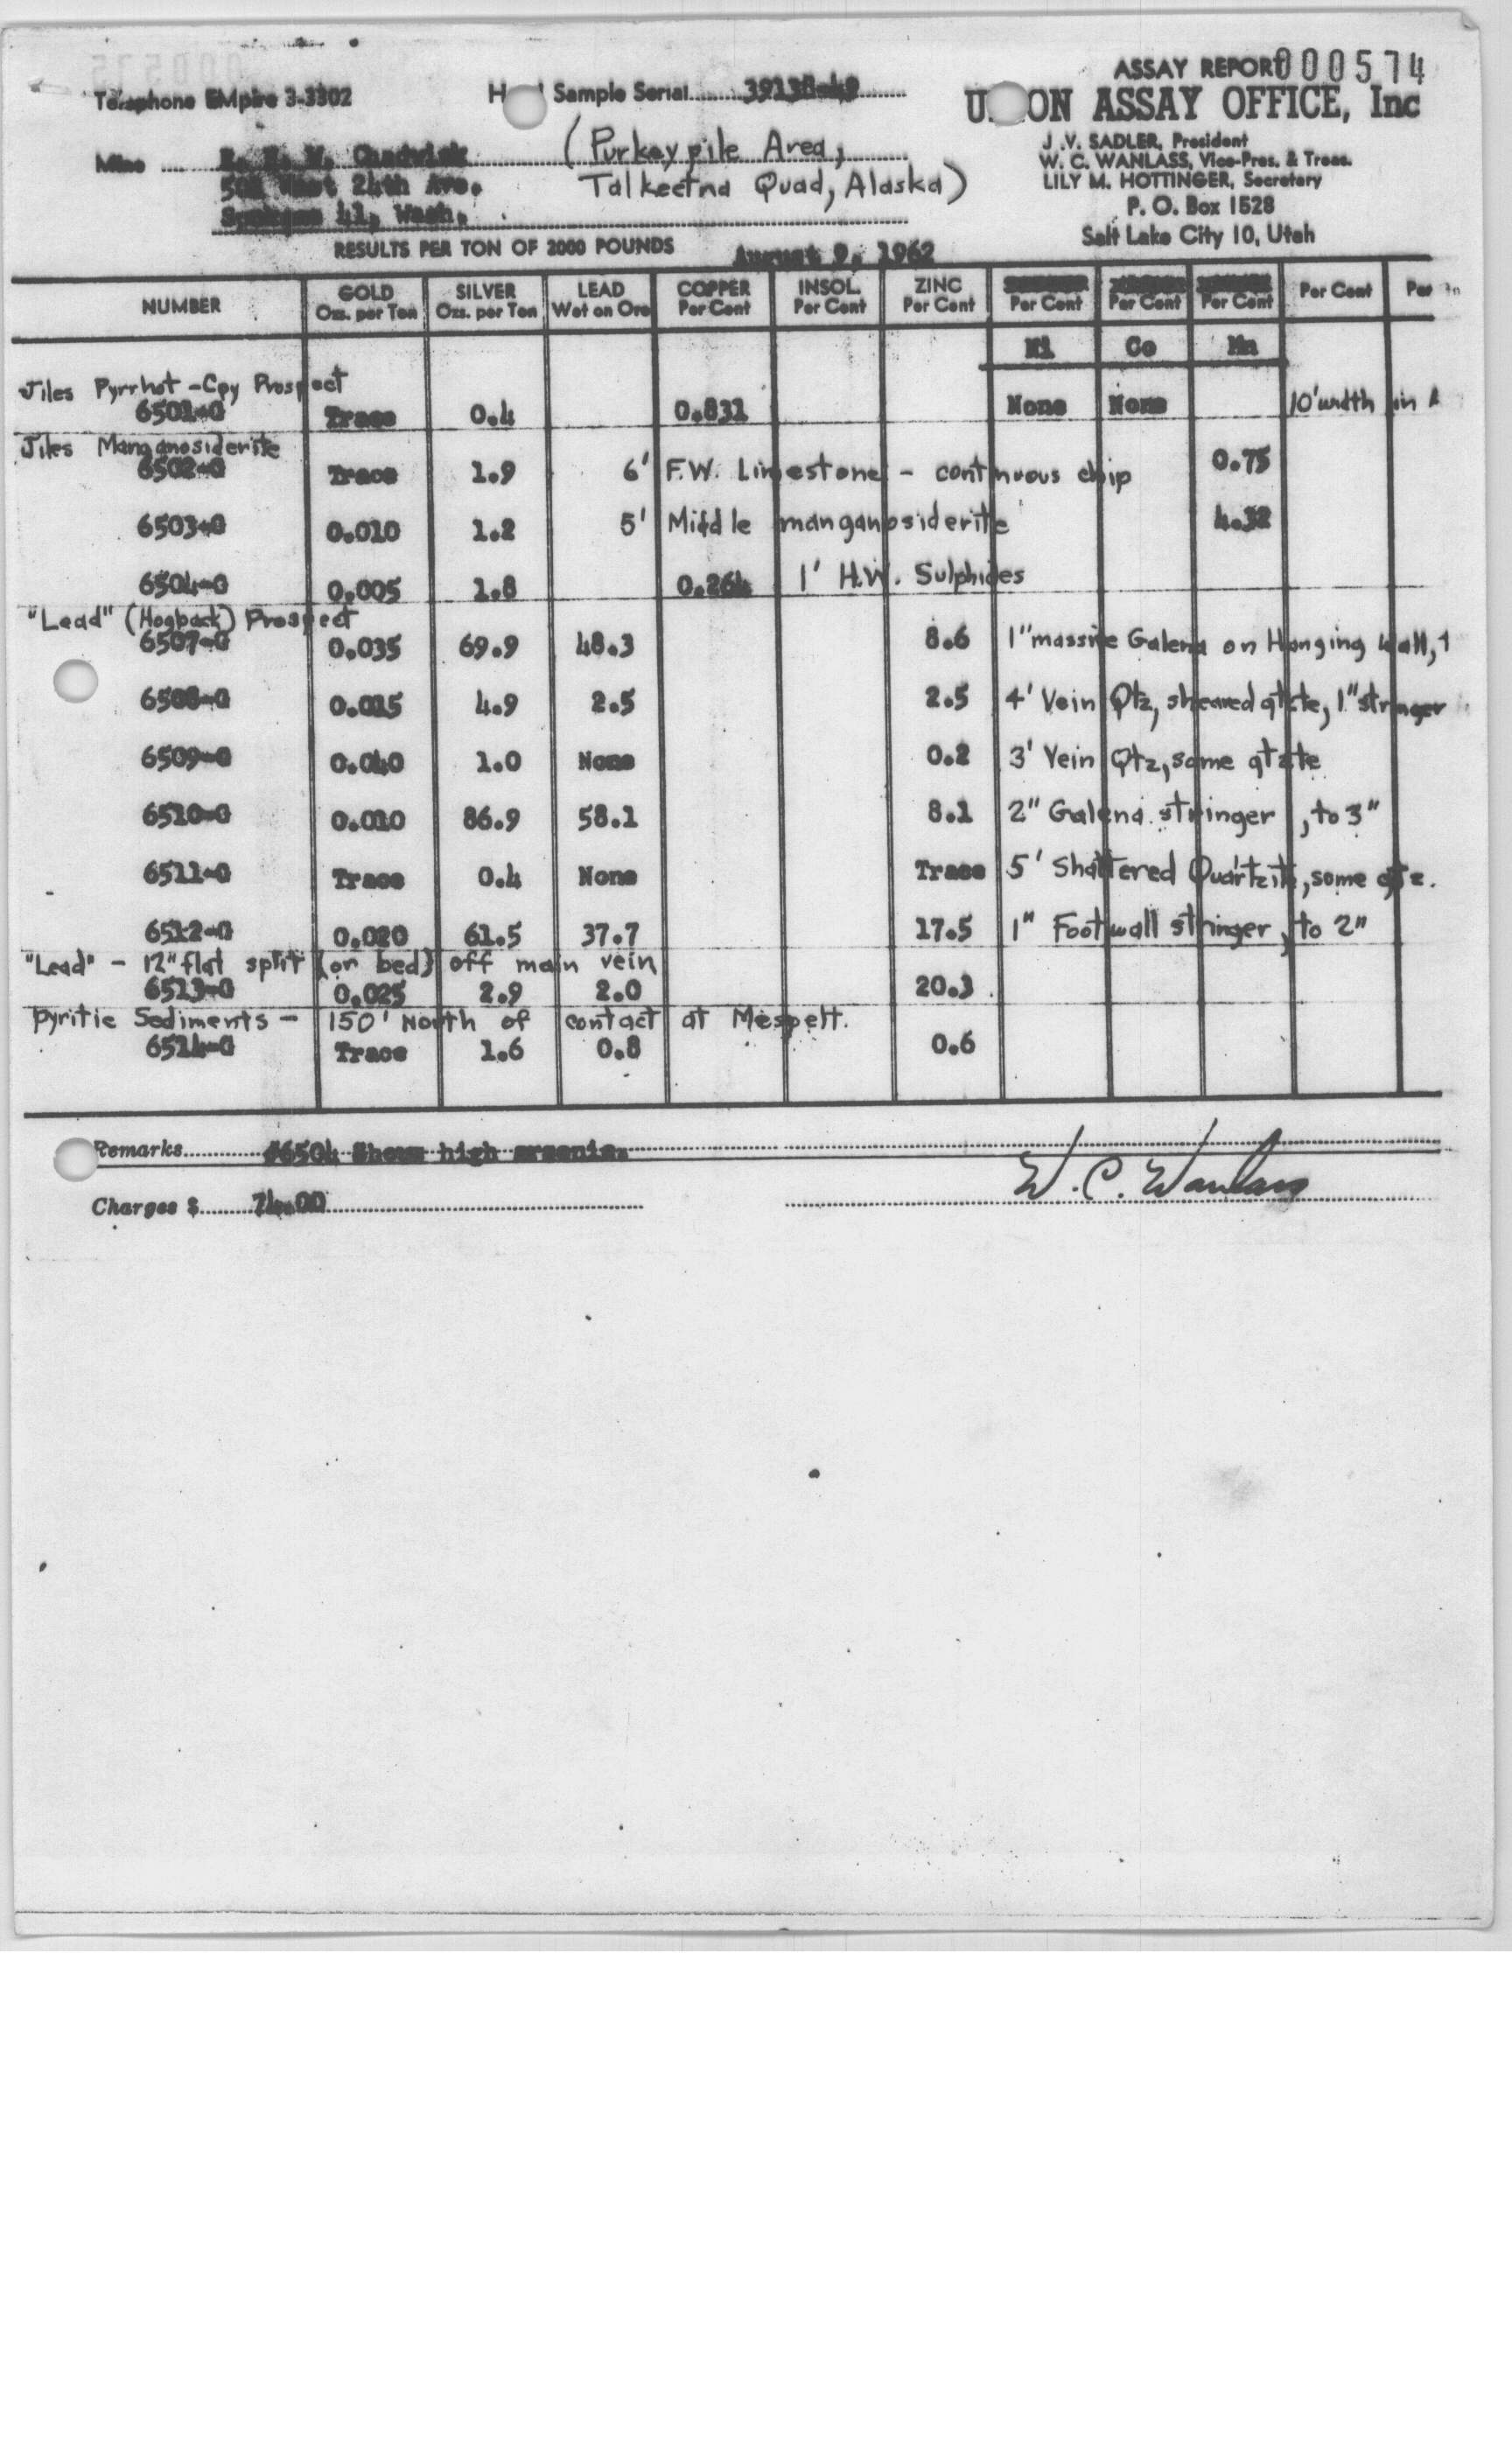 ASSAY REPORT 000574
Telephone EMpire 3-3302
Sample Serial 39138-49
UNION ASSAY OFFICE, Inc
J .V. SADLER, President
W. C. WANLASS, Vice-Pres. & Treas.
LILY M. HOTTINGER, Secretary
P. O. Box 1528
Salt Lake City 10, Utah
Mine Chadwick (Purkeypile Area,
West 24th Ave. Talkeetna Quad, Alaska)
Spokane 41, Wash.
RESULTS PER TON OF 2000 POUNDS August 9, 1962
NUMBER GOLD Ozs. per Ton SILVER Ozs. per Ton LEAD Wet on Ore COPPER Per Cent INSOL. Per Cent ZINC Per Cent Per Cent Per Cent Per Cent Per Cent Per
Ni Co Mn
Jiles Pyrrhot-Cpy Prospect
6501-G Trace 0.4 0.831 None None 10' width in
Jiles Manganosiderite
6502-G Trace 1.9 6' F.W. Limestone - continuous chip 0.75
6503-G 0.010 1.2 5' Middle manganosiderite 4.32
6504-G 0.005 1.8 0.264 1' H.W. Sulphides
"Lead" (Hogback) Prospect
6507-G 0.035 69.9 48.3 8.6 1" massive Galena on Hanging wall,
6508-G 0.015 4.9 2.5 2.5 4' Vein Qtz, sheared qtzte, 1" stringer
6509-G 0.040 1.0 None 0.2 3' Vein Qtz, some qtzte
6510-G 0.010 86.9 58.1 8.1 2" Galena stringer, to 3"
6511-G Trace 0.4 None Trace 5' Shattered Quartzite, some qtz.
6512-G 0.020 61.5 37.7 17.5 1" Footwall stringer, to 2"
"Lead" - 12" flat split (or bed) off main vein
6513-G 0.025 2.9 2.0 20.3
Pyritic Sediments - 150' North of contact at Mespelt.
6514-G Trace 1.6 0.8 0.6
Remarks #6504 Shows high arsenic.
Charges $ 74.00 W. C. Wanlass